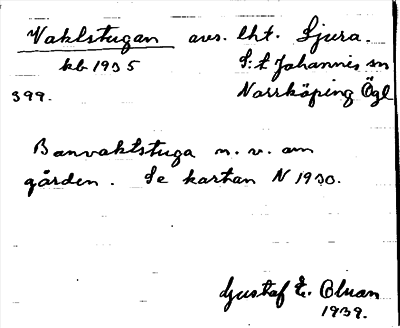 Vaktstugan avs. lht. Ljura.
kb 1935 S:t Johannis sn
399. Norrköping Ögl
Banvaktstuga n. v. om
gården. Se kartan N 1930.
Gustaf E.
1939.